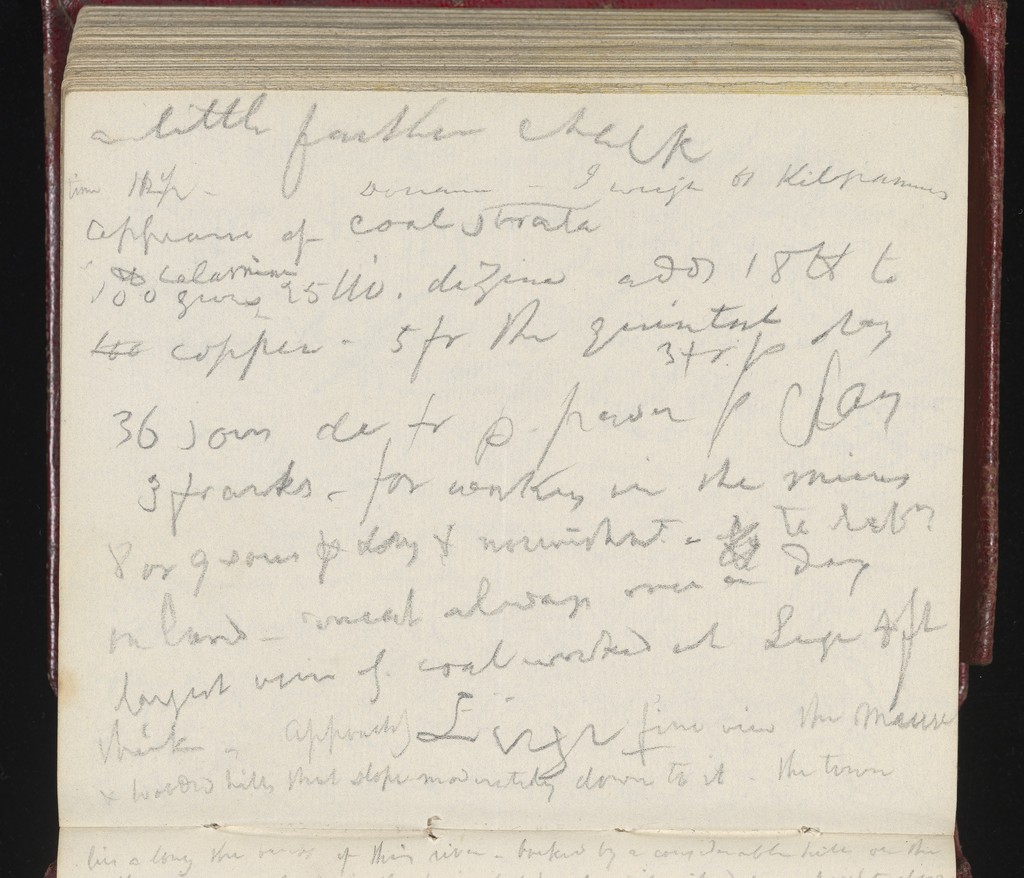 a little farther chalk
time - Douane - I weigh 61 Kilgrammes
appearance of coal strata
calamine
100 gives 25 dizine adds 18 to
copper - 5 fr the quintal
3 fr. p
36 sous de fr p. p day
3 franks - for working in the mines
8 or 9 sous p day & nourishmt - to labr
on land - meat always once a day
largest vein of coal worked at Liege 4 ft
thick - approachg Liege fine view the Meuse
& wooded hills that slope moderately down to it - the town
lies along the banks of this river - backed by a considerable hill on the